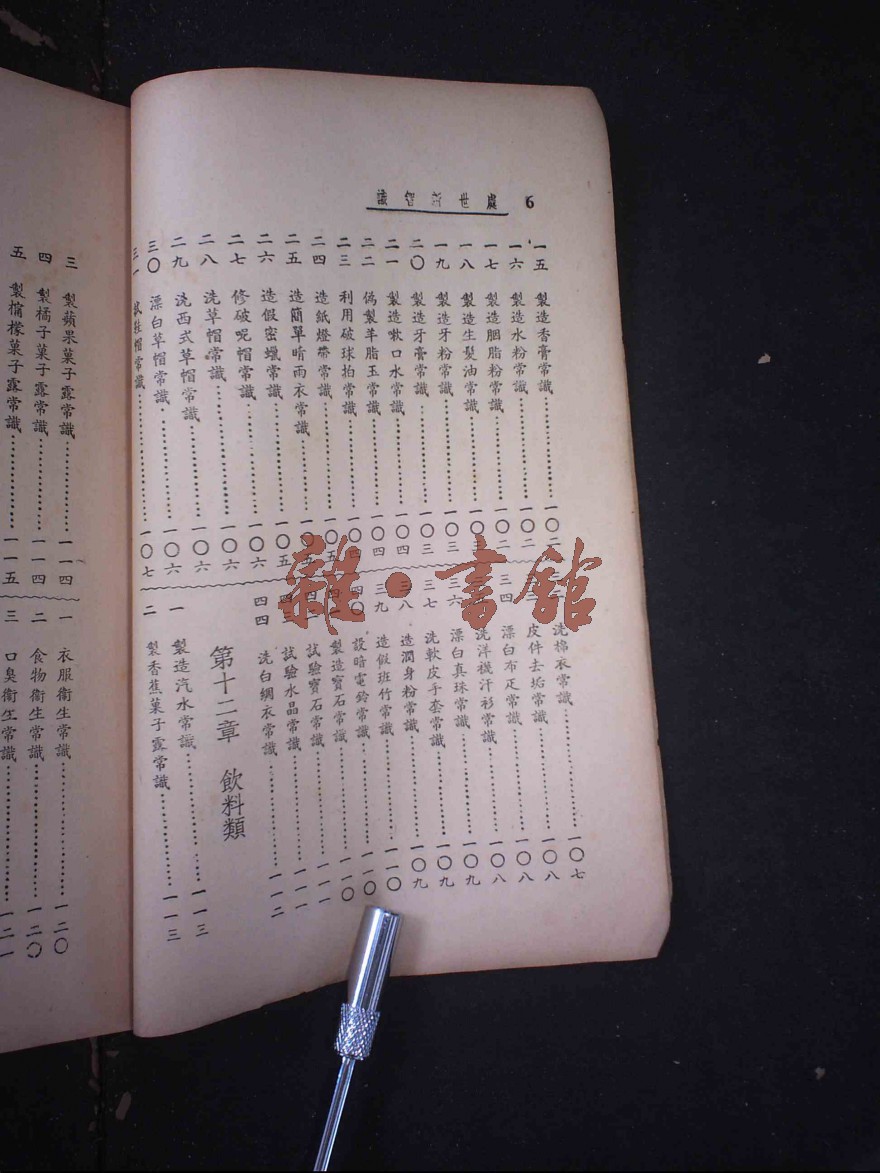 處世新智識 6
一五 製造香膏常識…………一〇二
一六 製造水粉常識…………一〇二
一七 製造胭脂粉常識…………一〇二
一八 製造生髮油常識…………一〇三
一九 製造牙粉常識…………一〇三
二〇 製造牙膏常識…………一〇三
二一 製造嗽口水常識…………一〇四
二二 偽製羊脂玉常識…………一〇四
二三 利用破球拍常識…………一〇四
二四 造紙燈帶常識…………一〇五
二五 造簡單晴雨衣常識…………
二六 造假密蠟常識…………
二七 修破呢帽常識…………一〇六
二八 洗草帽常識…………一〇六
二九 洗西式草帽常識…………一〇六
三〇 漂白草帽常識…………一〇六
三一 鞋帽常識…………一〇七
洗棉衣常識…………一〇七
皮件去垢常識…………一〇八
三四 漂白布疋常識…………一〇八
洗洋襪汗衫常識…………一〇八
三六 漂白真珠常識…………一〇九
三七 洗軟皮手套常識…………一〇九
三八 造潤身粉常識…………一〇九
三九 造假班竹常識…………一一〇
四〇 設暗電鈴常識…………一一〇
製造寶石常識…………一一〇
試驗寶石常識…………一一一
四三 試驗水晶常識…………一一一
四四 洗白綢衣常識…………一一二
第十二章 飲料類
一 製造汽水常識…………一一三
二 製香蕉菓子露常識…………一一三
三 製蘋果菓子露常識…………一一四
四 製橘子菓子露常識…………一一四
五 製檸檬菓子露常識…………一一五
一 衣服衛生常識…………一二〇
二 食物衛生常識…………一二〇
三 口臭衛生常識…………一二一
雜·書館